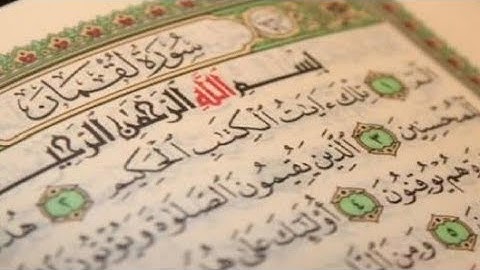 سُورَةُ لُقْمَانَ
بِسْمِ اللَّهِ الرَّحْمَٰنِ الرَّحِيمِ
الٓمٓ ١ تِلْكَ ءَايَٰتُ الْكِتَٰبِ الْحَكِيمِ ٢ هُدًى
لِّلْمُحْسِنِينَ ٣ الَّذِينَ يُقِيمُونَ الصَّلَوٰةَ وَيُؤْتُونَ
هُمْ يُوقِنُونَ ٤ أُولَٰئِكَ عَلَىٰ هُدًى
٥ وَمِنَ